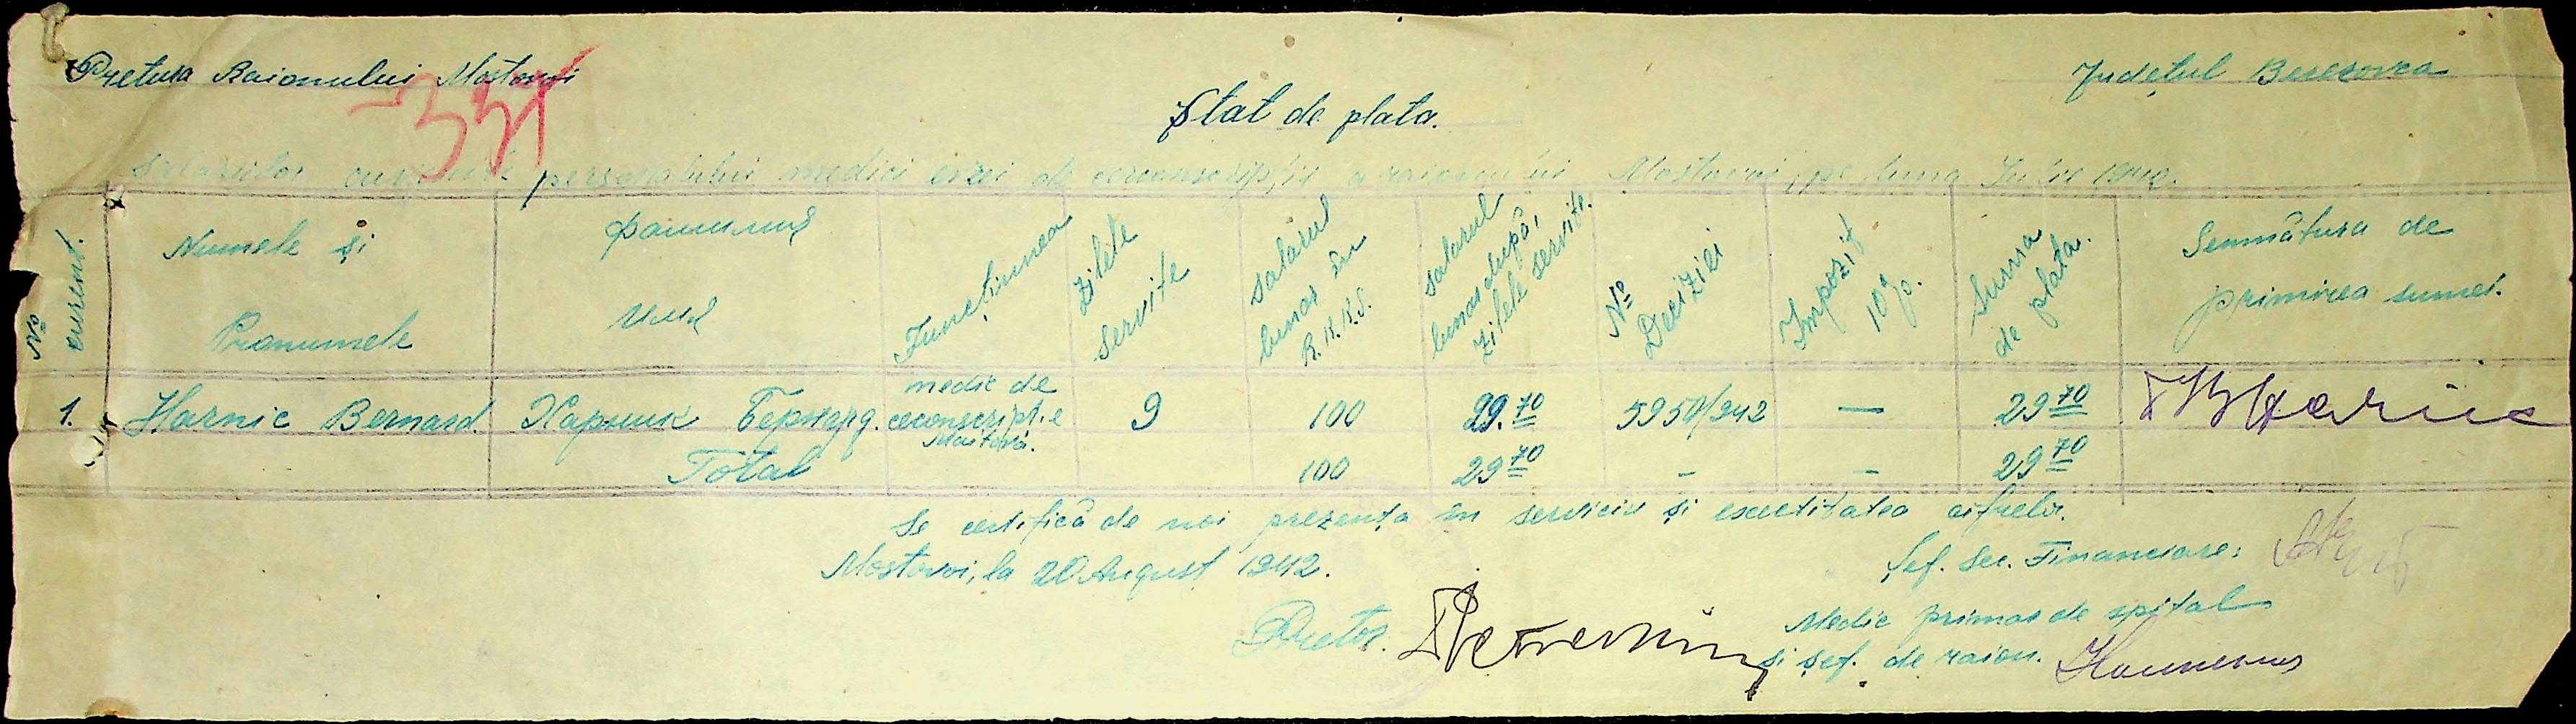 Pretura Raionului Mostovoi
Județul Berezovca
351
Stat de plata.
personalului medici de circonscripție a raionului Mostovoi, pe luna Iulie 1942.
№ curent.
Numele și Pronumele
Фамилия Имя
Funcțiunea
Zilele servite
Salarul lunar în R.K.K.S.
Salarul lunar după, zilele servite.
№ Deciziei
Impozit 10%.
Suma de plata.
Semnătura de primirea sumei.
1. Harnic Bernard. Харник Бернард. medic de circonscripție Mostovoi. 9 100 29.70 5950/942 — 29 70
Total 100 29 70 - - 29 70
Se certifică de noi prezența în serviciu și exactitatea cifrelor.
Mostovoi, la 20 August 1942.
Șef. Sec. Financiare:
Pretor.
Medic primar de spital
și șef. de raion.